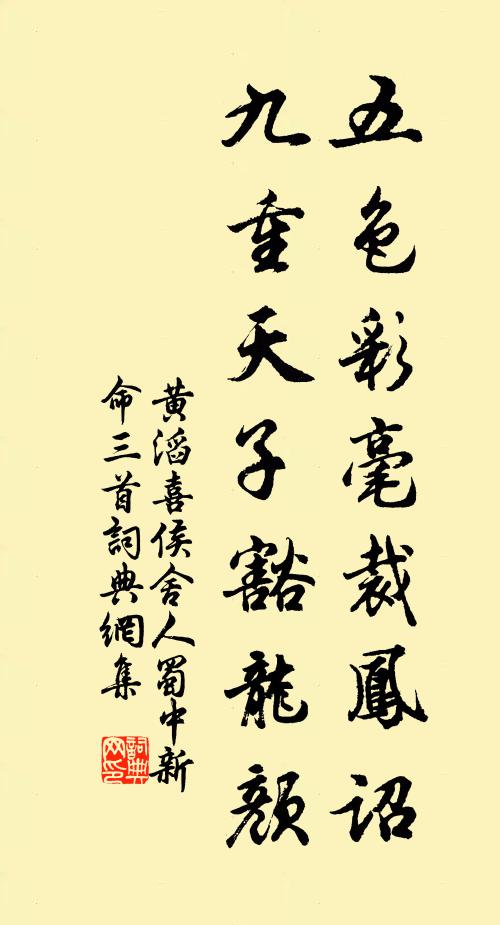 五色彩毫裁鳳詔
九重天子豁龍顏
黃滔喜侯舍人蜀中新
命三首詞典網集
詞典
网印